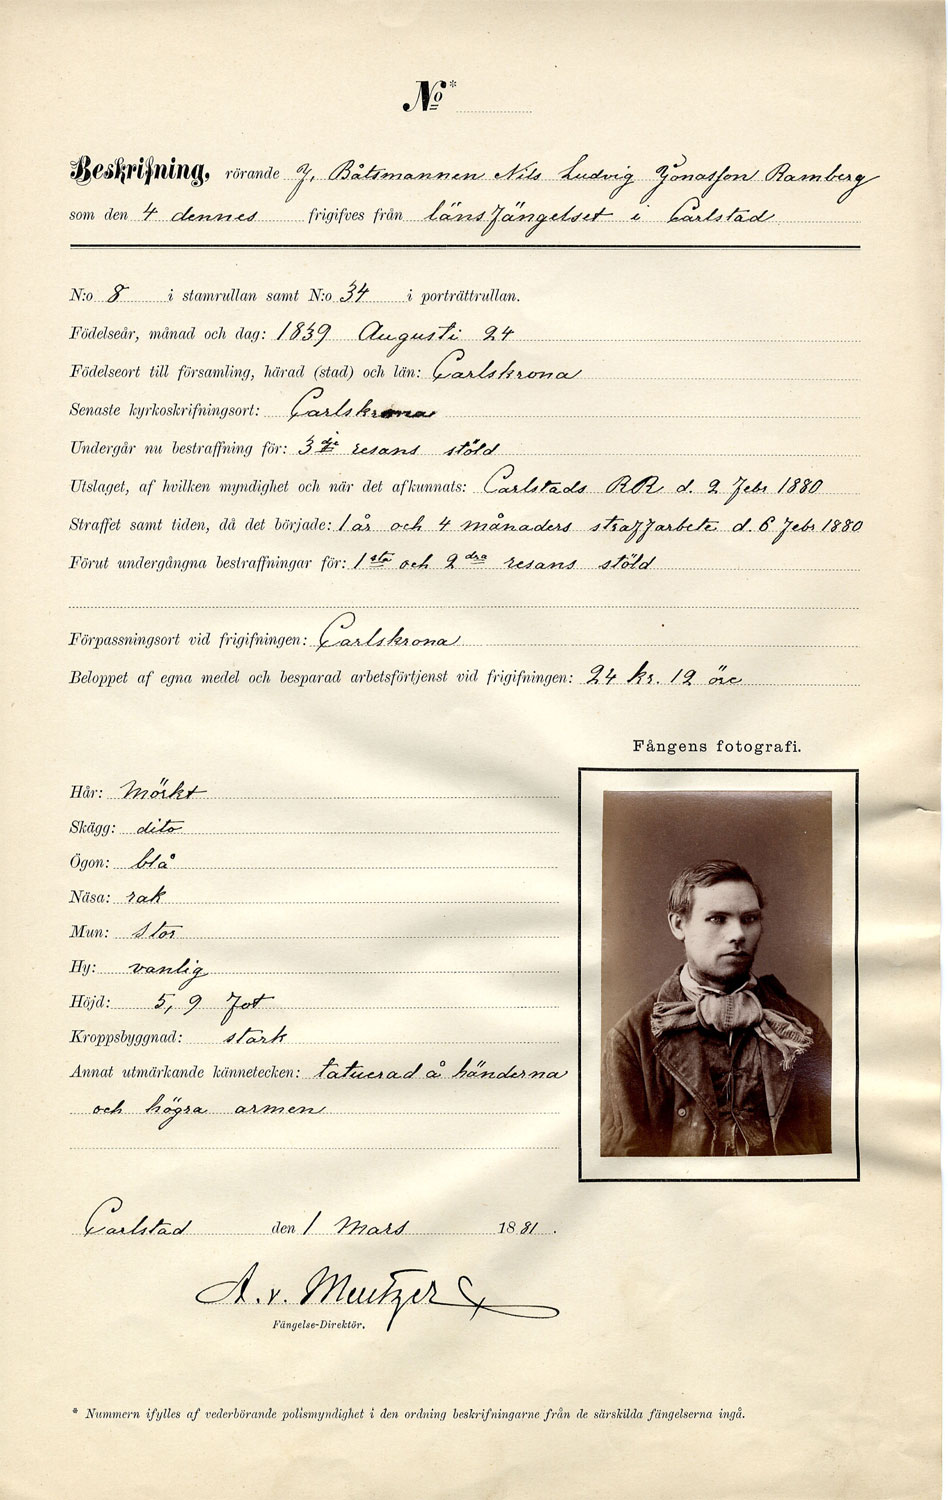 No *
Beskrifning, rörande f. Båtsmannen Nils Ludvig Jonasson Ramberg
som den 4 dennes frigifves från länsfängelset i Carlstad
N:o 8 i stamrullan samt N:o 34 i porträttrullan.
Födelseår, månad och dag: 1839 Augusti 24
Födelseort till församling, härad (stad) och län: Carlskrona
Senaste kyrkoskrifningsort: Carlskrona
Undergår nu bestraffning för: 3dje resans stöld
Utslaget, af hvilken myndighet och när det afkunnats: Carlstads RR d. 2 Febr 1880
Straffet samt tiden, då det började: 1 år och 4 månaders straffarbete d. 6 Febr 1880
Förut undergångna bestraffningar för: 1sta och 2dra resans stöld
Förpassningsort vid frigifningen: Carlskrona
Beloppet af egna medel och besparad arbetsförtjenst vid frigifningen: 24 kr. 12 öre
Fångens fotografi.
Hår: Mörkt
Skägg: dito
Ögon: blå
Näsa: rak
Mun: stor
Hy: vanlig
Höjd: 5,9 fot
Kroppsbyggnad: stark
Annat utmärkande kännetecken: tatuerad å händerna
och högra armen
Carlstad den 1 Mars 1881.
A. v. Mentzer
Fängelse-Direktör.
* Nummern ifylles af vederbörande polismyndighet i den ordning beskrifningarne från de särskilda fängelserna ingå.